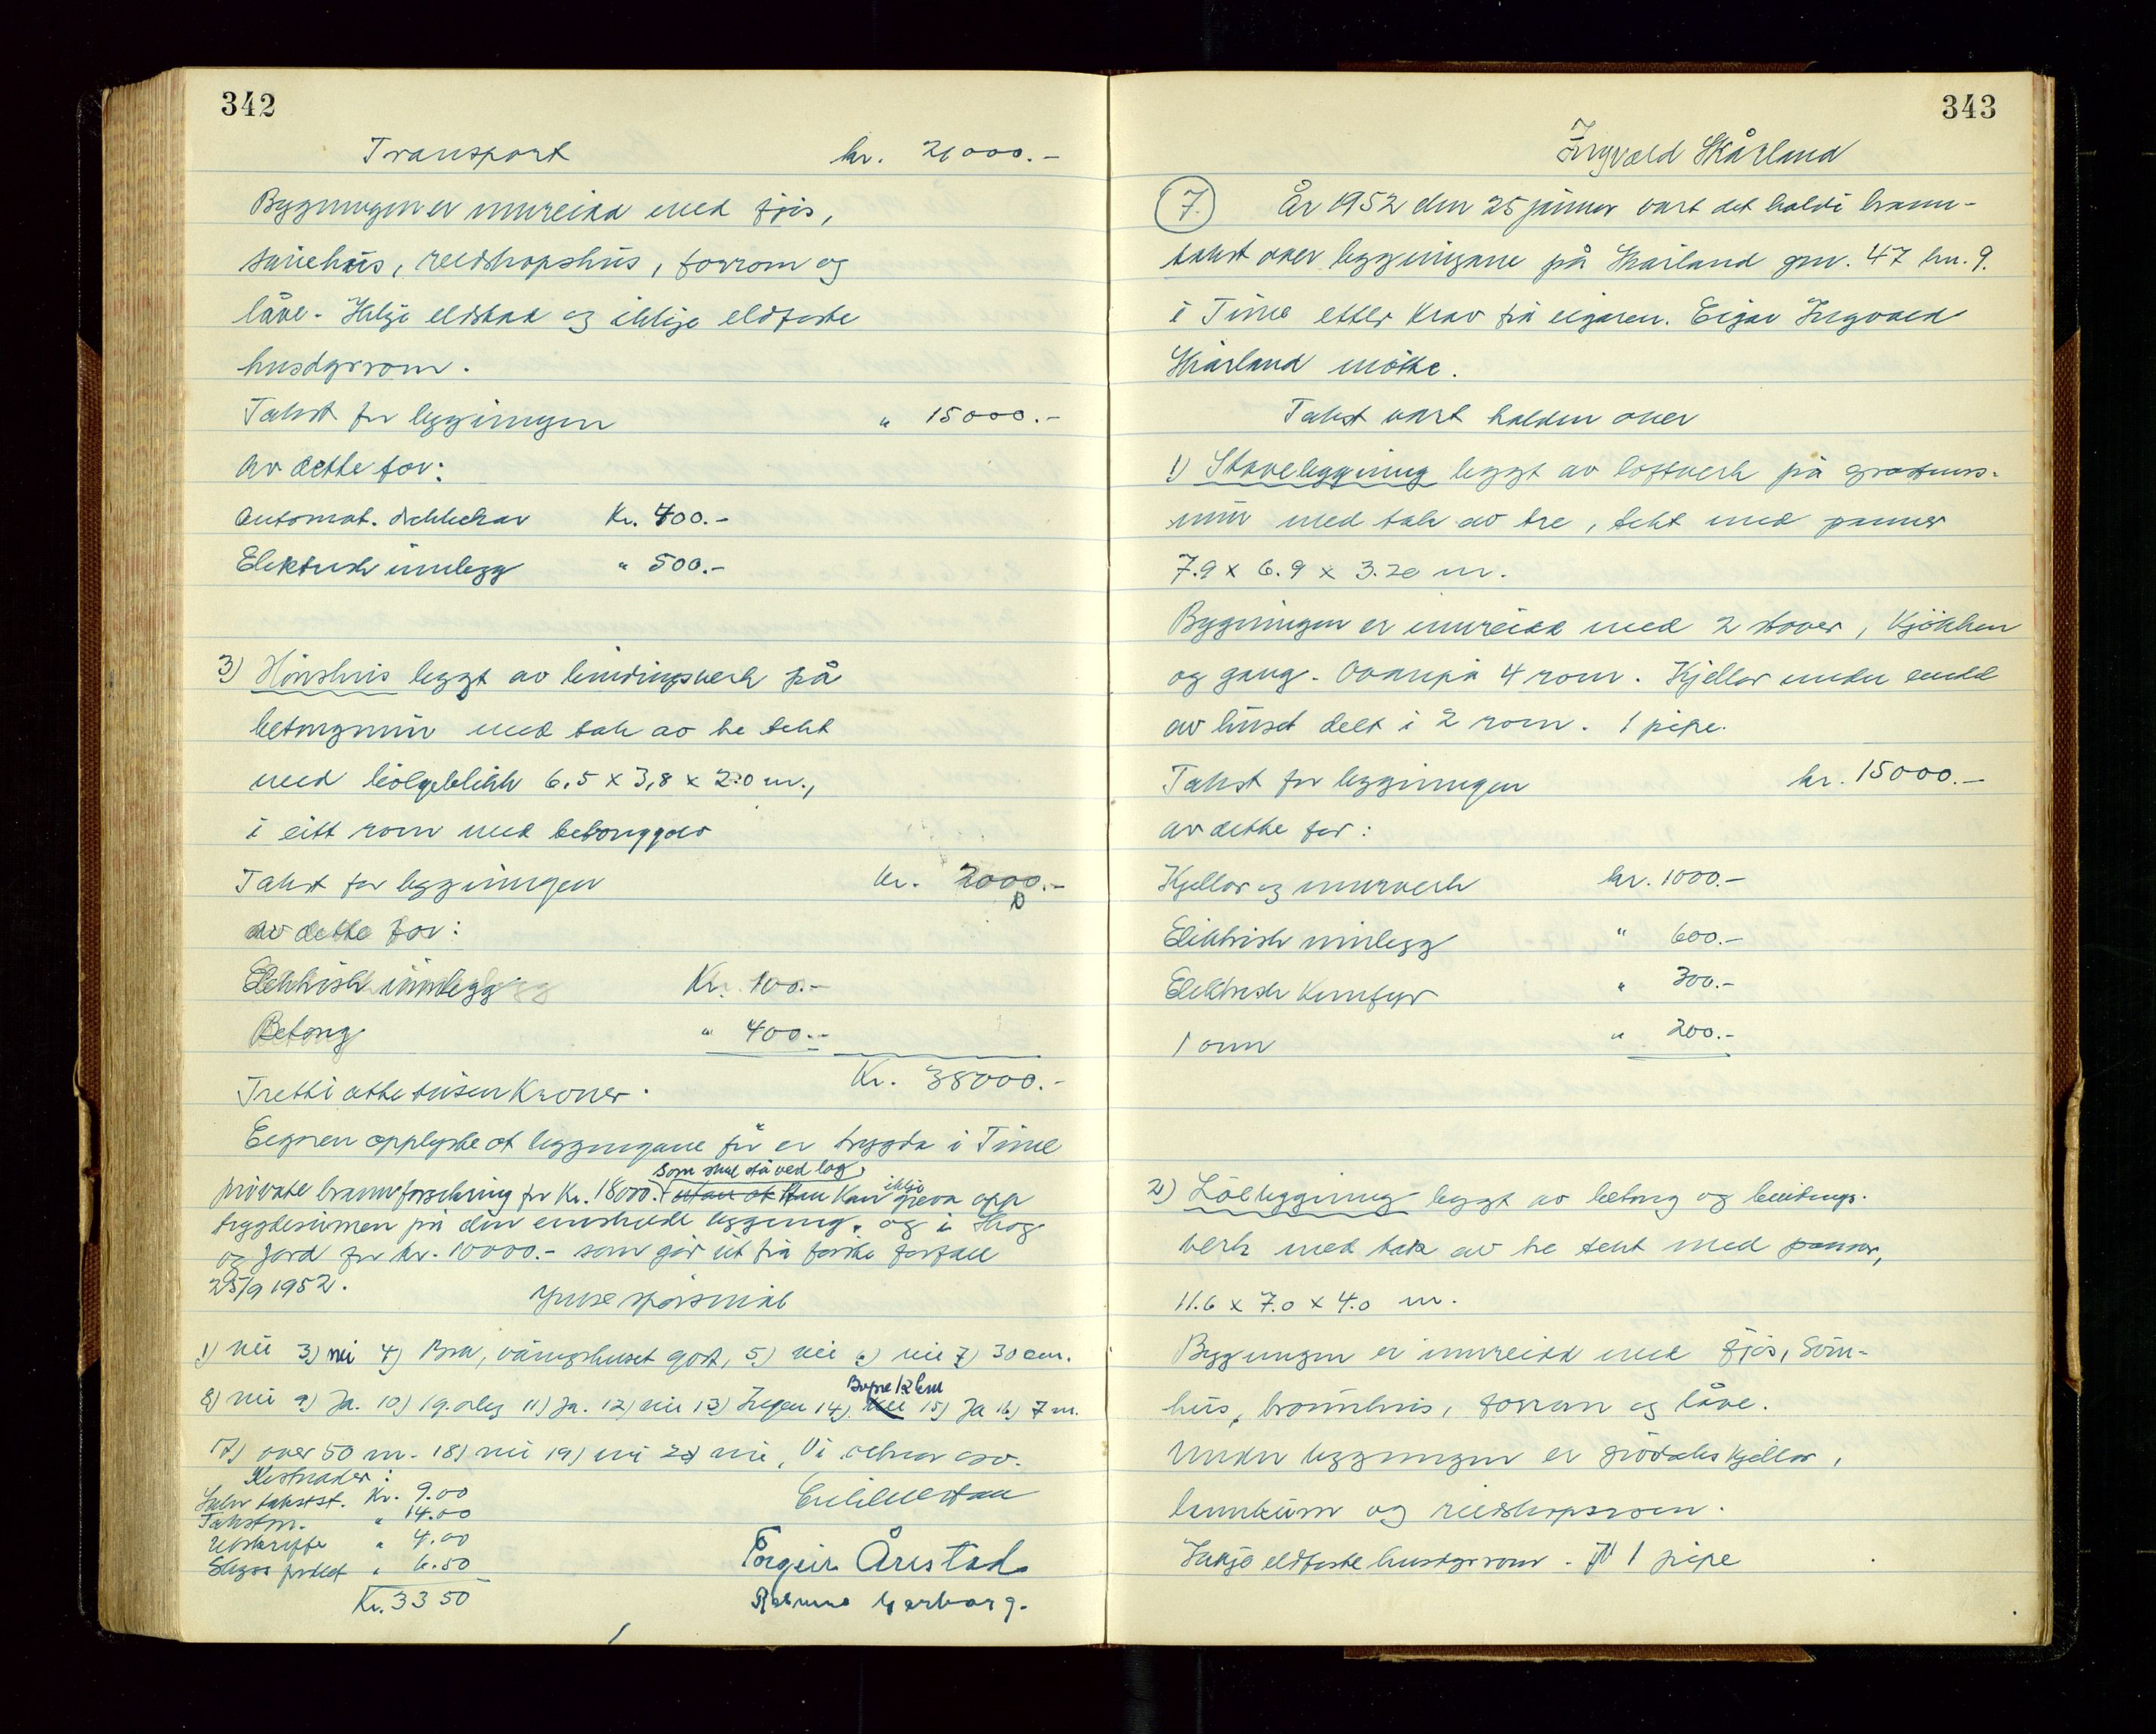 342
Transport kr. 21000.-
Bygningen er innreidd med fjös,
sauehus, reidskapshus, forrom og
låve. Ikkje eldstad og ikkje eldfaste
husdyrrom.
Takst for bygningen " 15000.-
Av dette for:
Automat. drikkekar Kr. 400.-
Elektrisk innlegg " 500.-
3) Hönshus bygt av bindingsverk på
betongmur med tak av tre tekt
med bölgeblikk 6.5 x 3,8 x 2.0 m.,
i eitt rom med betonggolv
Takst for bygningen kr. 2000.-
av dette for:
Elektrisk innlegg Kr. 100.-
Betong " 400.-
Kr. 38000.-
Tretti åtte tusen Kroner.
Eigaren opplyste at bygningane för er trygda i Time
som skal stå ved lag,
private brannforsikring for Kr. 18000.- utan at Han kan ikkje greva opp
trygdesummen på den einskilde bygning. og i Skog
og Jord for kr. 10000.- som går ut frå förske forfall
25/9 1952.
Ymse spörsmål
1) nei 3) nei 4) Bra, våningshuset godt, 5) nei 6) nei 7) 30 cm.
Bryne 12 km
8) nei 9) Ja. 10) 19. 11) Ja. 12) nei 13) Ingen 14) nei 15) Ja 16) 7 m.
17) over 50 m. 18) nei 19) nei 20) nei, Vi
Kostnader:
takstst. Kr. 9.00
Takstm. " 14.00
Utskrifter " 4.00
Skyss " 6.50
Kr. 33 50
Torgeir Årestad
Rasmus Garborg.
343
Ingvald Skårland
7. År 1952 den 25 januar vart det halde brann-
takst over bygningane på Skårland gnr. 47 bnr. 9.
i Time etter krav frå eigaren. Eigar Ingvald
Skårland møtte.
Takst vart halden over
1) Stovebygning bygt av loftverk på gråsteins-
mur med tak av tre, tekt med panner
7.9 x 6.9 x 3.20 m.
Bygningen er innreidd med 2 stover, Kjökken
og gang. Ovanpå 4 rom. Kjellar under
av huset delt i 2 rom. 1 pipe.
Takst for bygningen kr. 15000.-
av dette for:
Kjellar og murverk kr. 1000.-
Elektrisk innlegg " 600.-
Elektrisk Komfyr " 300.-
1 omn " 200.-
2) Löebygning bygt av betong og bindings-
verk med tak av tre tekt med panner,
11.6 x 7.0 x 4.0 m.
Bygningen er innreidd med fjös,
hus, brönnhus, forrom og låve.
Under bygningen er grödakjellar,
landkum og reidskapsrom.
Ikkje eldfaste husdyrrom. 1 pipe